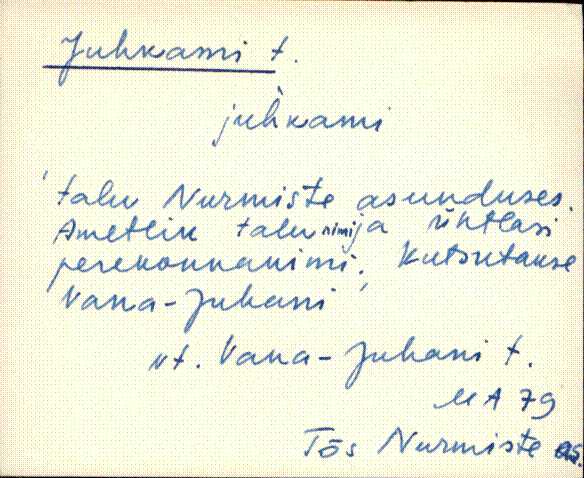 Juhkami t.
juh̀kami
'talu Nurmiste asunduses.
Ametlik talunimi ja ühtlasi
perekonnanimi. Kutsutakse
Vana-Juhani'
vt. Vana-Juhani t.
MA 79
Tõs Nurmiste as.